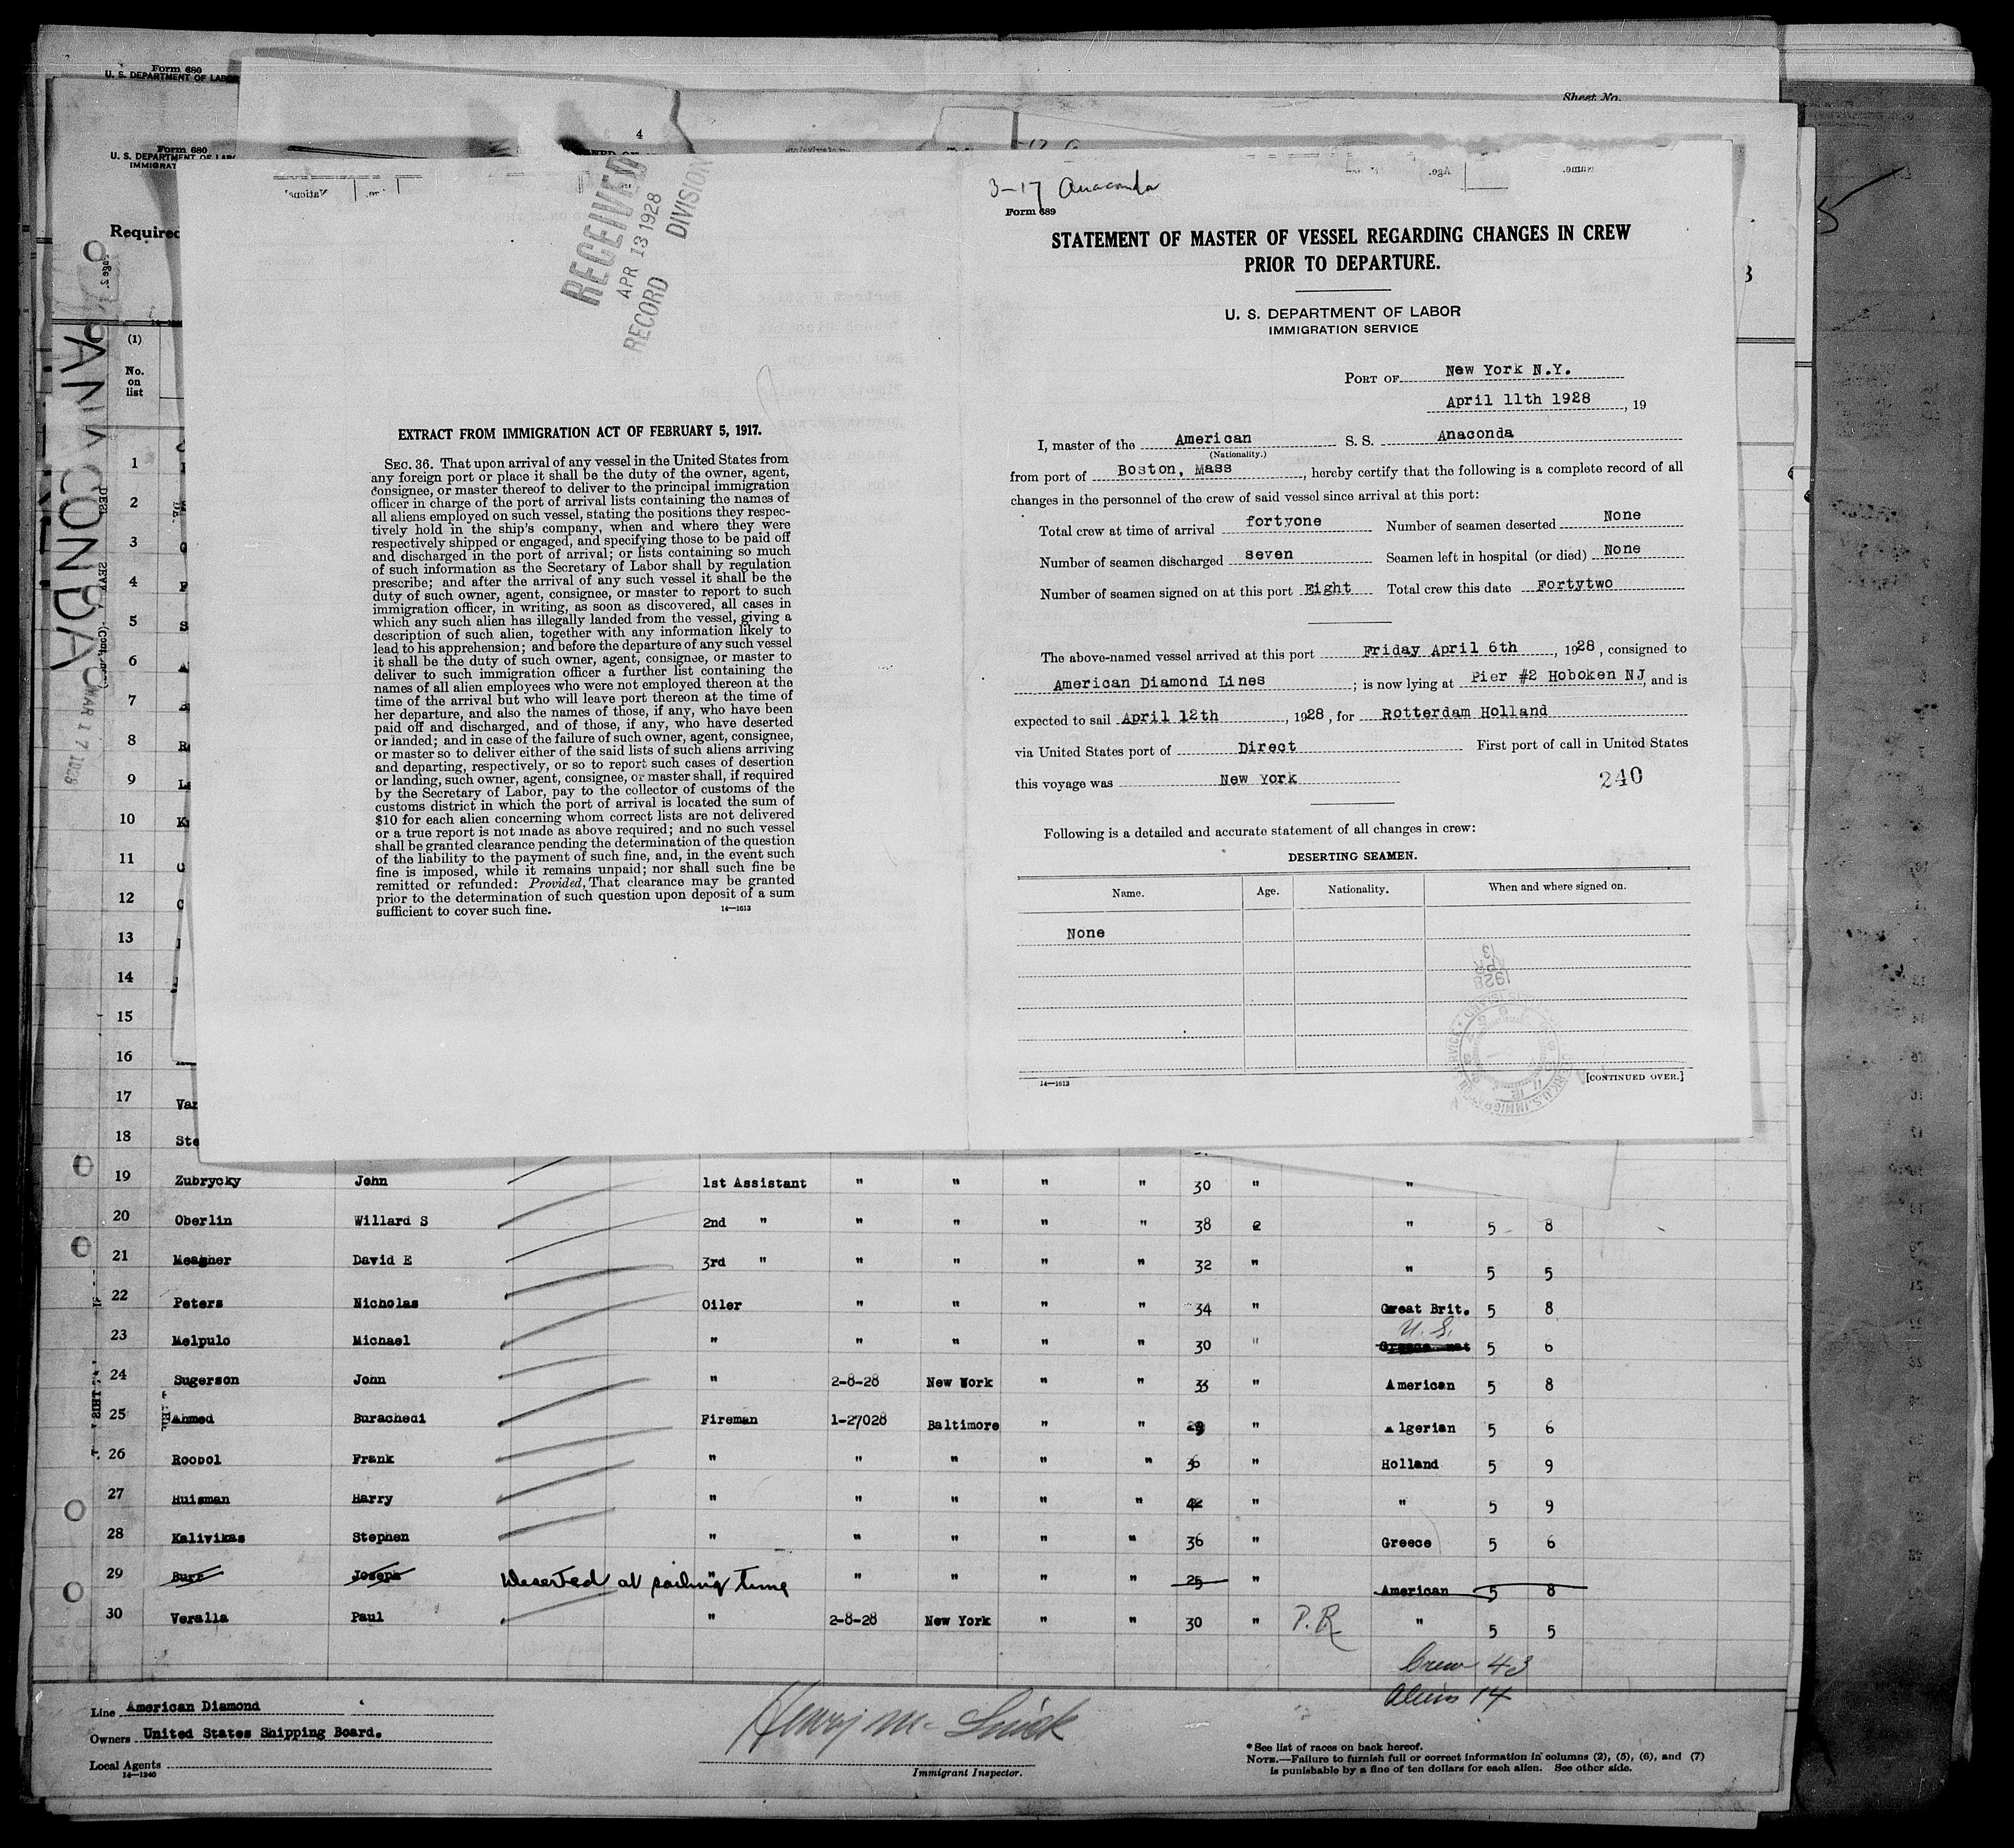 Form 680
U. S. DEPARTMENT OF LABOR
Sheet No.
4
Form 680
U. S. DEPARTMENT OF LABOR
IMMIGRAT
Required
(1)
No.
on
list
ANACONDA
MAR 17 1928
RECEIVED
APR 13 1928
RECORD DIVISION
EXTRACT FROM IMMIGRATION ACT OF FEBRUARY 5, 1917.
SEC. 36. That upon arrival of any vessel in the United States from
any foreign port or place it shall be the duty of the owner, agent,
consignee, or master thereof to deliver to the principal immigration
officer in charge of the port of arrival lists containing the names of
all aliens employed on such vessel, stating the positions they respec-
tively hold in the ship's company, when and where they were
respectively shipped or engaged, and specifying those to be paid off
and discharged in the port of arrival; or lists containing so much
of such information as the Secretary of Labor shall by regulation
prescribe; and after the arrival of any such vessel it shall be the
duty of such owner, agent, consignee, or master to report to such
immigration officer, in writing, as soon as discovered, all cases in
which any such alien has illegally landed from the vessel, giving a
description of such alien, together with any information likely to
lead to his apprehension; and before the departure of any such vessel
it shall be the duty of such owner, agent, consignee, or master to
deliver to such immigration officer a further list containing the
names of all alien employees who were not employed thereon at the
time of the arrival but who will leave port thereon at the time of
her departure, and also the names of those, if any, who have been
paid off and discharged, and of those, if any, who have deserted
or landed; and in case of the failure of such owner, agent, consignee,
or master so to deliver either of the said lists of such aliens arriving
and departing, respectively, or so to report such cases of desertion
or landing, such owner, agent, consignee, or master shall, if required
by the Secretary of Labor, pay to the collector of customs of the
customs district in which the port of arrival is located the sum of
$10 for each alien concerning whom correct lists are not delivered
or a true report is not made as above required; and no such vessel
shall be granted clearance pending the determination of the question
of the liability to the payment of such fine, and, in the event such
fine is imposed, while it remains unpaid; nor shall such fine be
remitted or refunded: Provided, That clearance may be granted
prior to the determination of such question upon deposit of a sum
sufficient to cover such fine. 14—1613
3-17 Anaconda
Form 689
STATEMENT OF MASTER OF VESSEL REGARDING CHANGES IN CREW
PRIOR TO DEPARTURE.
U. S. DEPARTMENT OF LABOR
IMMIGRATION SERVICE
PORT OF New York N.Y.
April 11th 1928, 19
I, master of the American S. S. Anaconda
(Nationality.)
from port of Boston, Mass, hereby certify that the following is a complete record of all
changes in the personnel of the crew of said vessel since arrival at this port:
Total crew at time of arrival fortyone Number of seamen deserted None
Number of seamen discharged seven Seamen left in hospital (or died) None
Number of seamen signed on at this port Eight Total crew this date Fortytwo
The above-named vessel arrived at this port Friday April 6th, 1928, consigned to
American Diamond Lines; is now lying at Pier #2 Hoboken NJ, and is
expected to sail April 12th, 1928, for Rotterdam Holland
via United States port of Direct First port of call in United States
this voyage was New York 240
Following is a detailed and accurate statement of all changes in crew:
DESERTING SEAMEN.
Name. Age. Nationality. When and where signed on.
None
14—1613 [CONTINUED OVER.]
1
2
3
4
5
6
7
8
9
10
11
12
13
14
15
16
17 Van
18 Ste
19 Zubrycky John 1st Assistant " " " " 30 " "
20 Oberlin Willard S 2nd " " " " " 38 " 5 8
21 Meagher David E 3rd " " " " " 32 " " 5 5
22 Peters Nicholas Oiler " " " " 34 " Great Brit. 5 8
U. S.
23 Melpulo Michael " " " " " 30 " Greece 5 6
24 Sugerson John " 2-8-28 New Work " " 33 " American 5 8
25 Ahmed Burachedi Fireman 1-27028 Baltimore " " 29 " Algerian 5 6
26 Roobol Frank " " " " " 36 " Holland 5 9
27 Huisman Harry " " " " " 42 " " 5 9
28 Kalivikas Stephen " " " " " 36 " Greece 5 6
29 Burr Joseph Deserted at sailing time " " " " " 25 " American 5 8
30 Veralla Paul " 2-8-28 New York " " 30 " P.R. " 5 5
Crew 43
Aliens 14
Line American Diamond
Owners United States Shipping Board.
Local Agents
14—1240
Immigrant Inspector.
* See list of races on back hereof.
NOTE.—Failure to furnish full or correct information in columns (2), (5), (6), and (7)
is punishable by a fine of ten dollars for each alien. See other side.